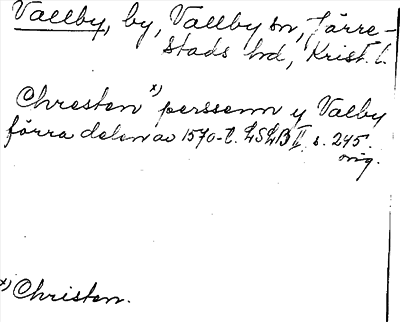 Vallby, by, Vallby sn, Järre-
stads hd, Krist. l.
Chresten x) perssenn y Valby
förra delen av 1570-t. LSLB II s. 245.
orig.
x) Christen.